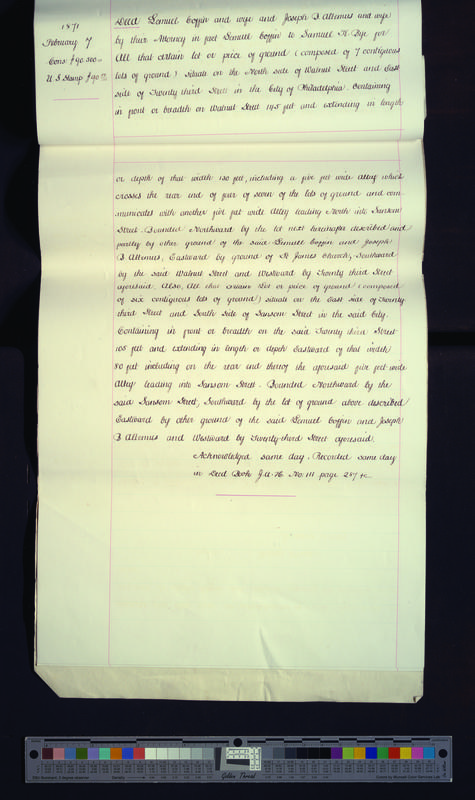 1871
February 7
Cons: $90.500 =
U. S Stamp $90 50/100
Deed Lemuel Coffin and wife and Joseph B Altemus and wife
by their Attorney in fact Lemuel Coffin to Samuel K. Bye for
All that certain lot or piece of ground (composed of 7 contiguous
lots of ground) situate on the North side of Walnut Street and East
side of Twenty third Street in the City of Philadelphia. Containing
in front or breadth on Walnut Street 145 feet and extending in length
or depth of that width 130 feet, including a five feet wide Alley which
crosses the rear end of four of seven of the lots of ground and com-
municates with another five feet wide Alley leading North into Sansom
Street. Bounded Northward by the lot next hereinafter described and
partly by other ground of the said Lemuel Coffin and Joseph
B Altemus, Eastward by ground of St James Church, Southward
by the said Walnut Street and Westward by Twenty third Street
aforesaid. Also, All that certain lot or piece of ground (composed
of six contiguous lots of ground) situate on the East side of Twenty-
third Street and South side of Sansom Street in the said City.
Containing in front or breadth on the said Twenty third Street
105 feet and extending in length or depth Eastward of that width
80 feet including on the rear end thereof the aforesaid five feet wide
Alley leading into Sansom Street. Bounded Northward by the
said Sansom Street, Southward by the lot of ground above described
Eastward by other ground of the said Lemuel Coffin and Joseph
B Altemus and Westward by Twenty-third Street aforesaid.
Acknowledged same day. Recorded same day
in Deed Book J.A.H. No. 111 page 287 &c
Golden Thread